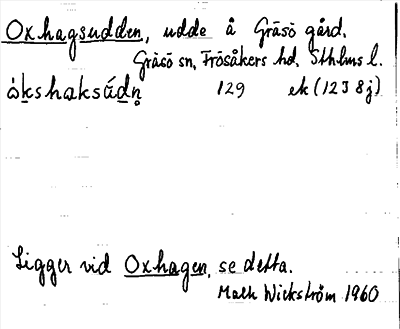 Oxhagsudden, udde å Gräsö gård.
Gräsö sn, Frösåkers hd, Sthlms l.
ò̀kshaksúdn̥ 129 ek (1238j)
Ligger vid Oxhagen, se detta.
Mats Wickström 1960